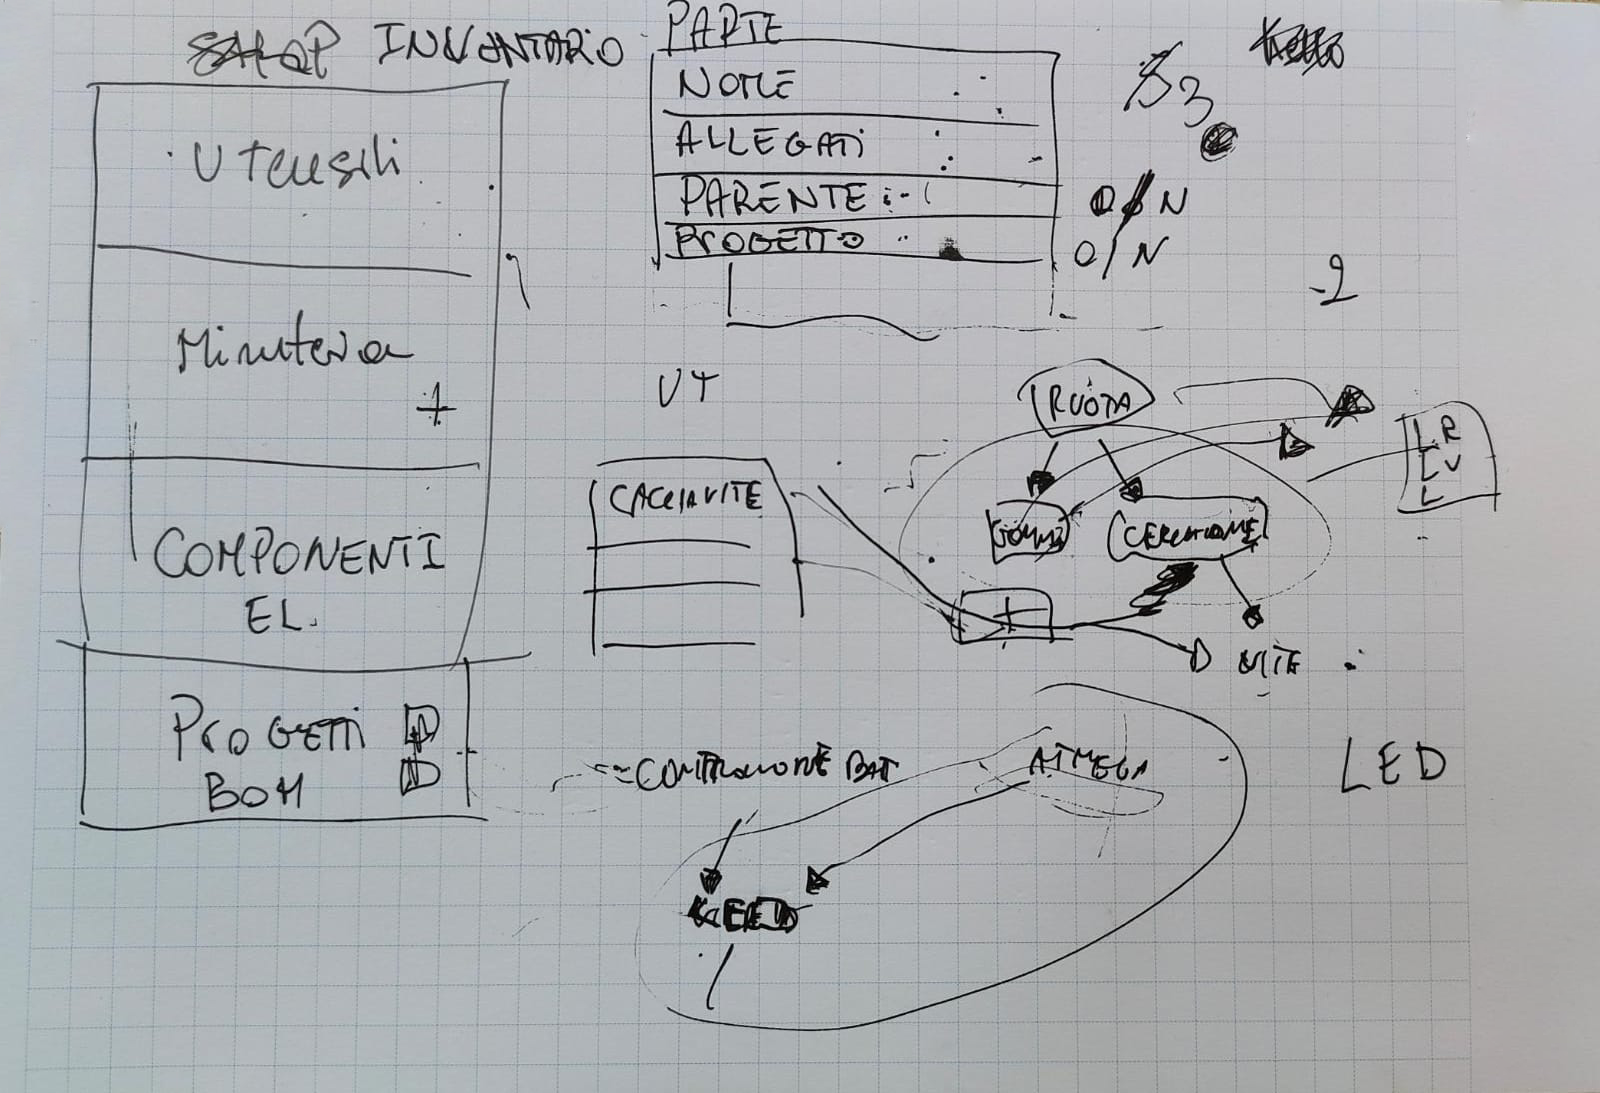 INVENTARIO
Utensili
Minuteria
+
COMPONENTI
EL.
PROGETTI
BOM
PARTE
NOME
ALLEGATI
PARENTE
PROGETTO
S3
O/N
O/N
UT
CACCIAVITE
RUOTA
GOMMA
CERCHIONE
+
VITE
ATMEGA
LED